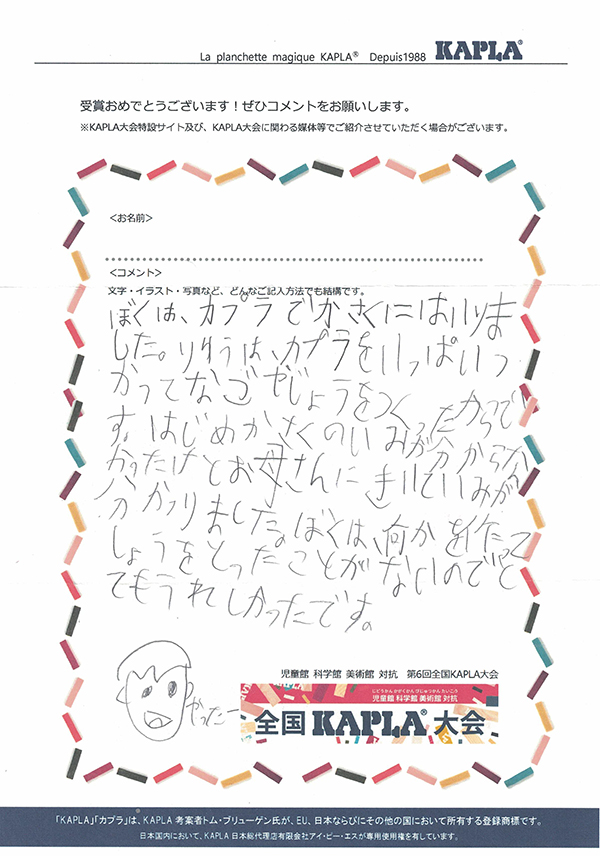 La planchette magique KAPLA® Depuis1988 KAPLA®
受賞おめでとうございます！ぜひコメントをお願いします。
※KAPLA大会特設サイト及び、KAPLA大会に関わる媒体等でご紹介させていただく場合がございます。
＜お名前＞
＜コメント＞
文字・イラスト・写真など、どんなご記入方法でも結構です。
ぼくは、カプラでかさくにはいりま
した。りゆうは、カプラをいっぱいつ
かってなごやじょうをつくったからで
す。はじめかさくのいみが分からな
かったけどお母さんにきいていみが
分かりました。ぼくは、何かを作って
しょうをとったことがないのでと
てもうれしかったです。
やったー
児童館 科学館 美術館 対抗 第6回全国KAPLA大会
じどうかん かがくかん びじゅつかん たいこう
児童館 科学館 美術館 対抗
全国KAPLA®大会
「KAPLA」「カプラ」は、KAPLA 考案者トム・ブリューゲン氏が、EU、日本ならびにその他の国において所有する登録商標です。
日本国内において、KAPLA 日本総代理店有限会社アイ・ピー・エスが専用使用権を有しています。